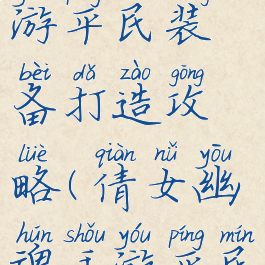 游平民装
bèi dǎ zào gōng
备打造攻
lüè qiàn nǚ yōu
略(倩女幽
hún shǒu yóu píng mín
魂手游平民